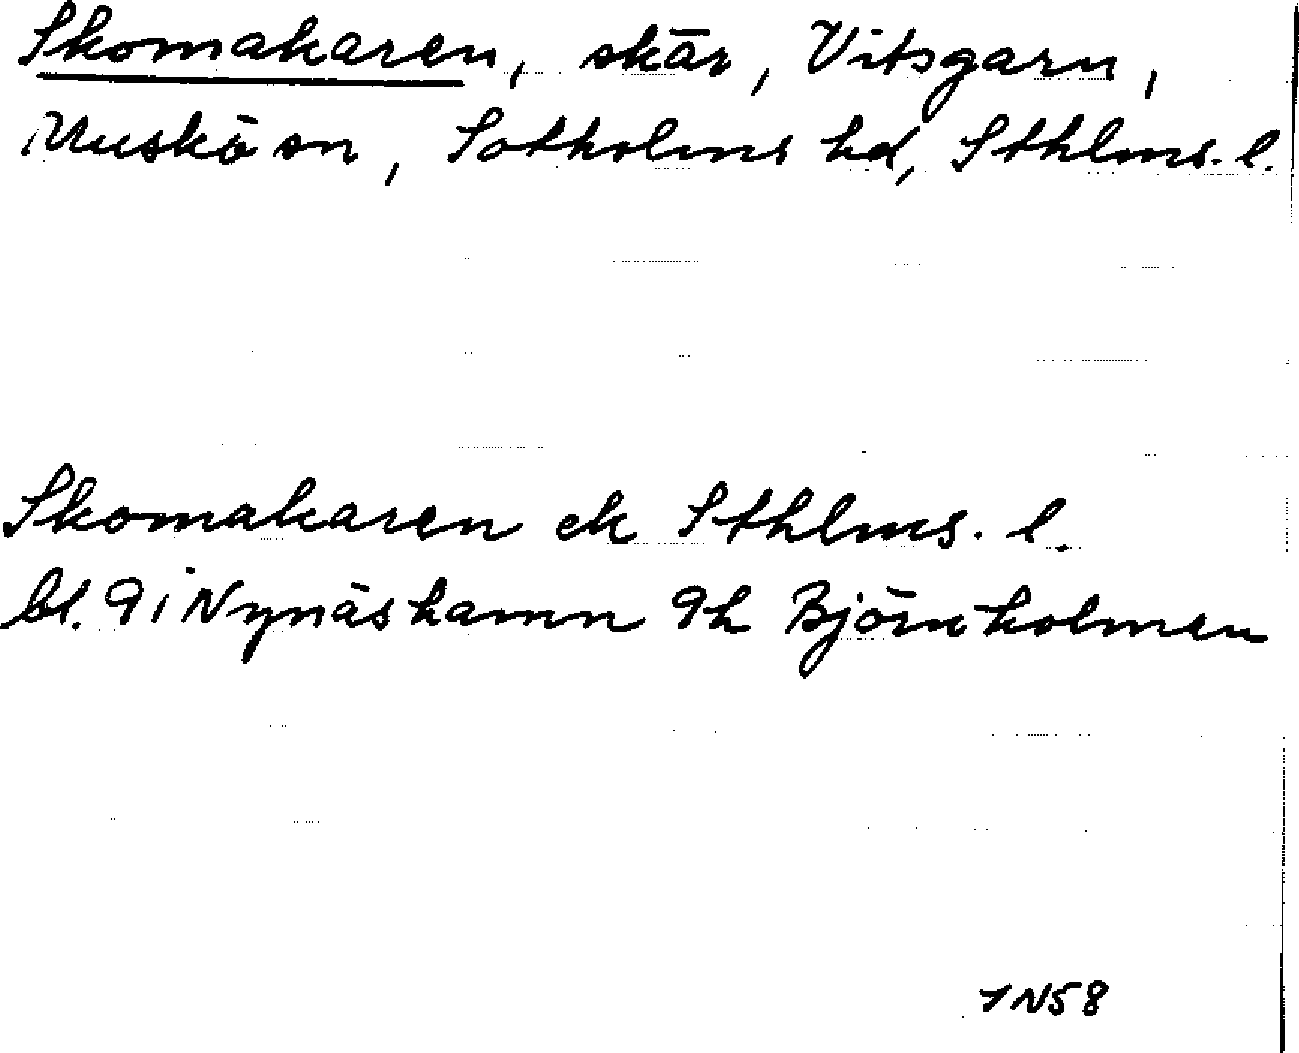 Skomakaren, skär, Vitsgarn,
Muskö sn, Sotholms hd, Sthlms. l.
Skomakaren ek Sthlms. l.
bl. 9i Nynäshamn 9h Björnholmen
IN58